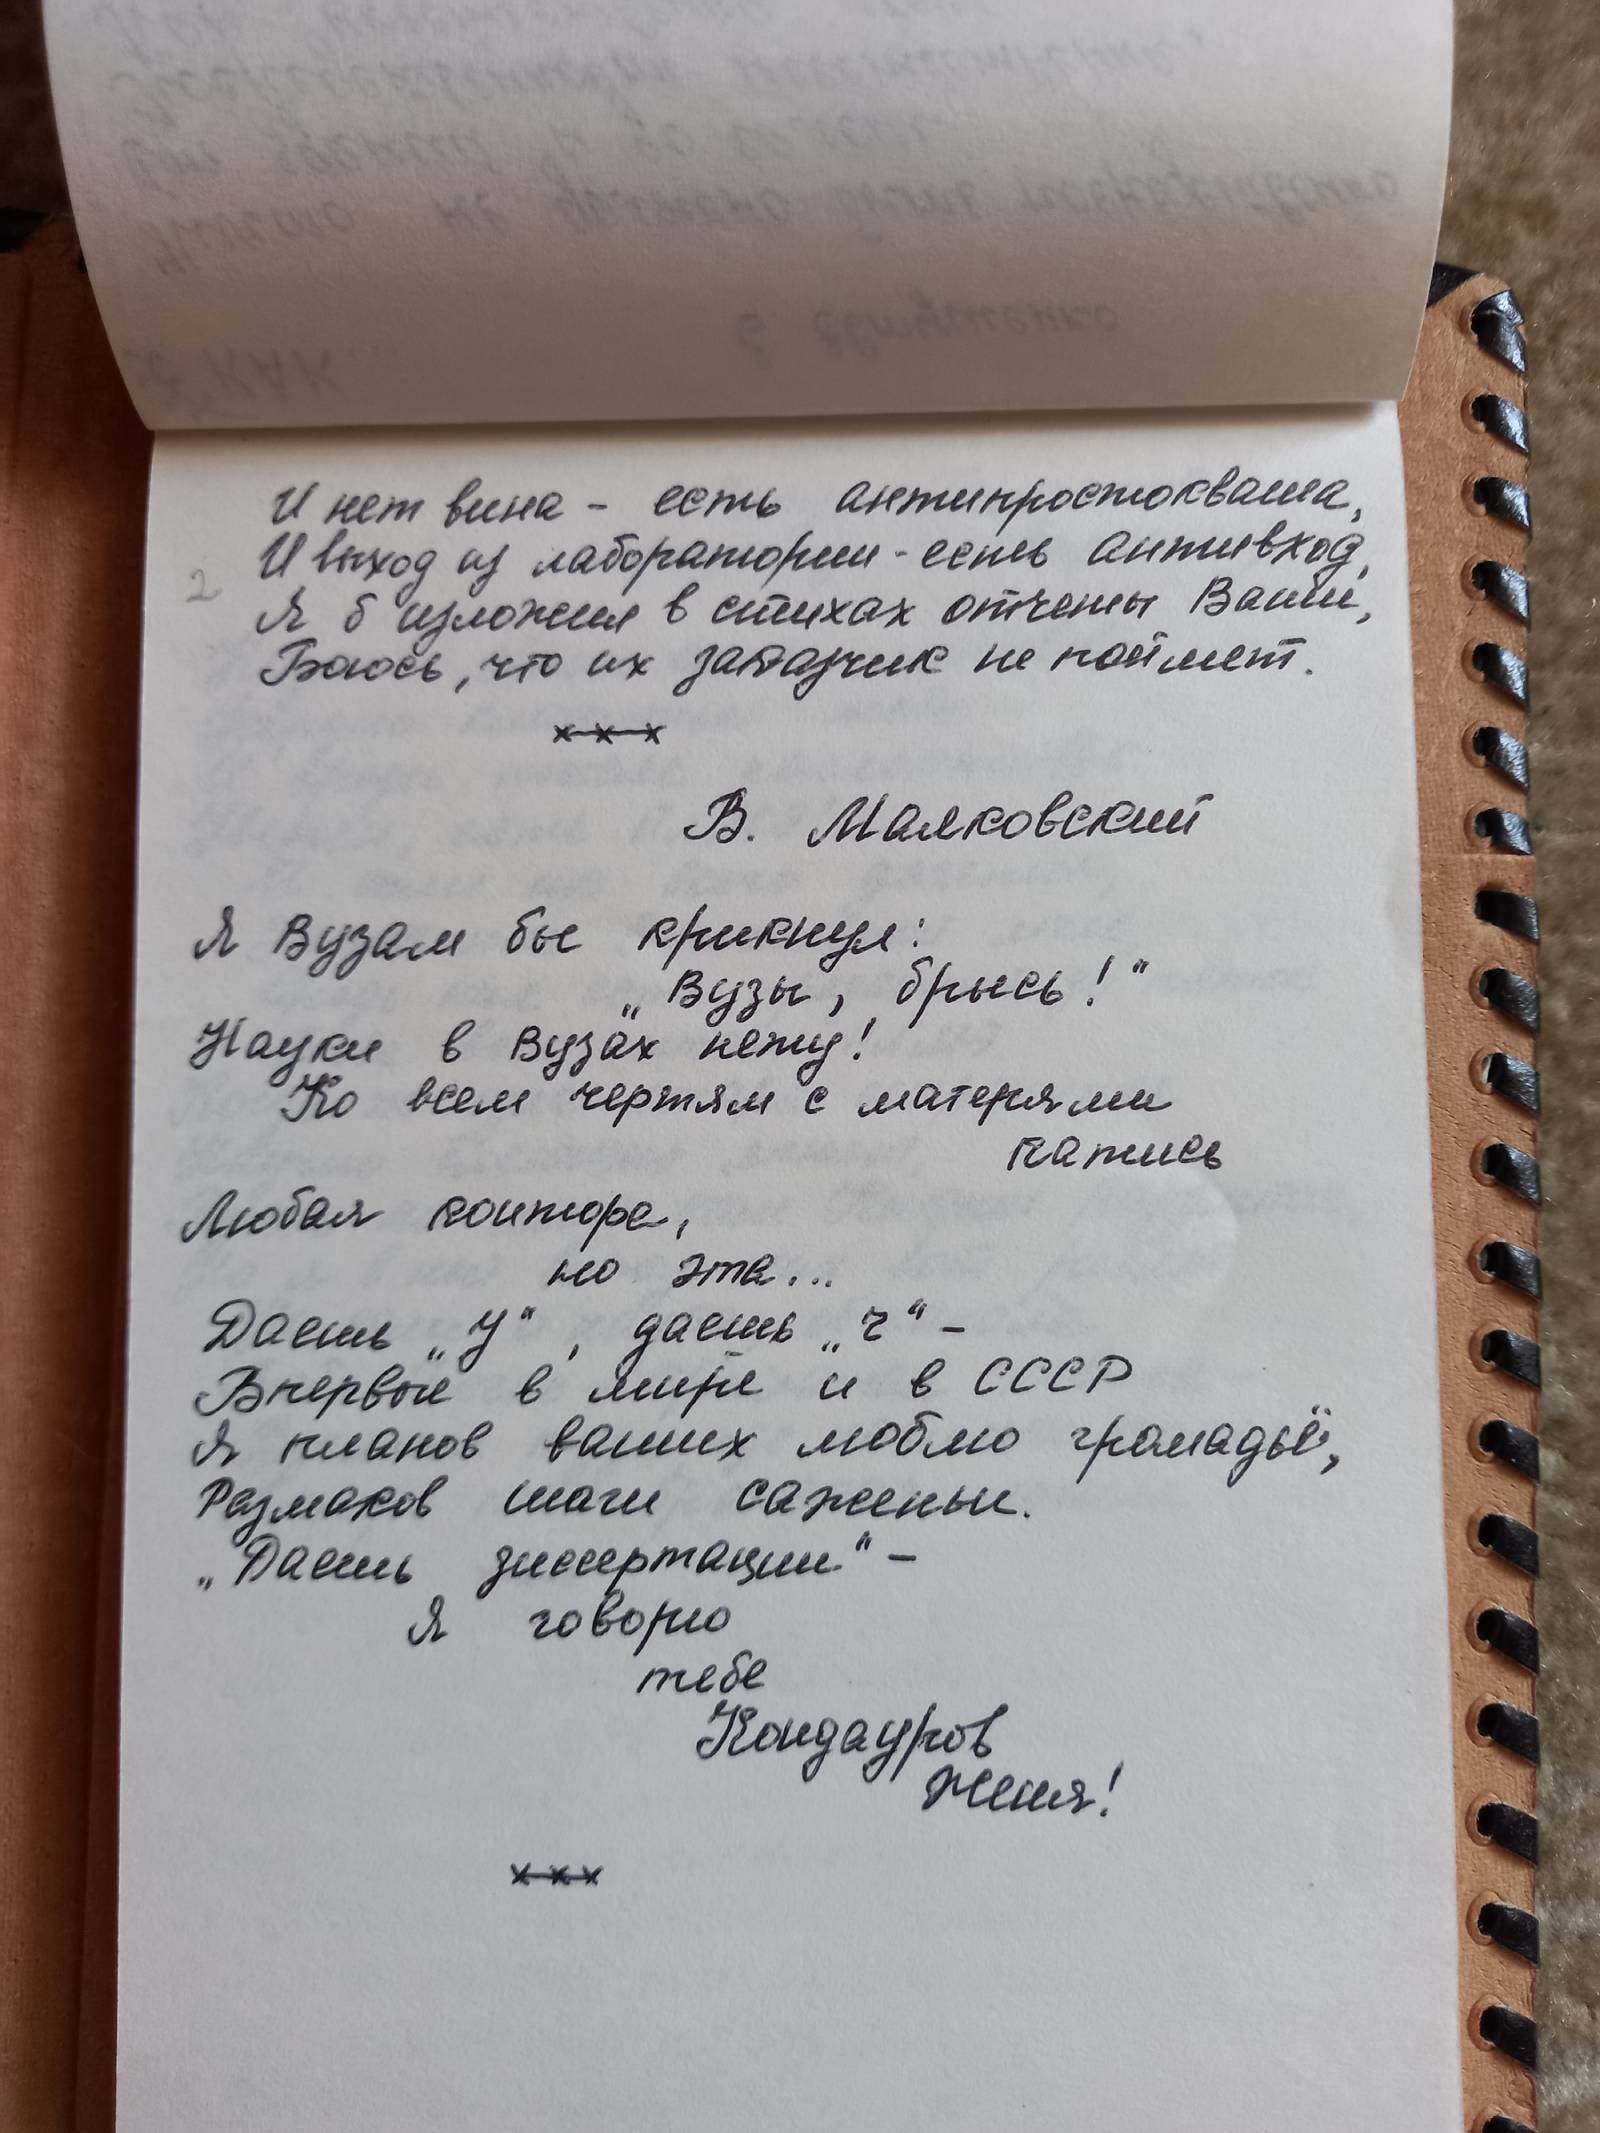 И нет вина - есть антипростокваша,
2
И выход из лаборатории - есть антивход,
Я б изложил в стихах отчеты Ваши,
Боюсь, что их заказчик не поймет.
х-х-х
В. Маяковский
Я Вузам бы крикнул:
„Вузы, брысь!"
Науки в Вузах нету!
Ко всем чертям с матерями
катись
Любая контора,
но эта...
Даешь „У", даешь „г" –
Впервые в мире и в СССР
Я планов ваших люблю громадьё,
Размахов шаги саженьи.
„Даешь диссертации" –
Я говорю
тебе
Кондауров
Женя!
х-х-х